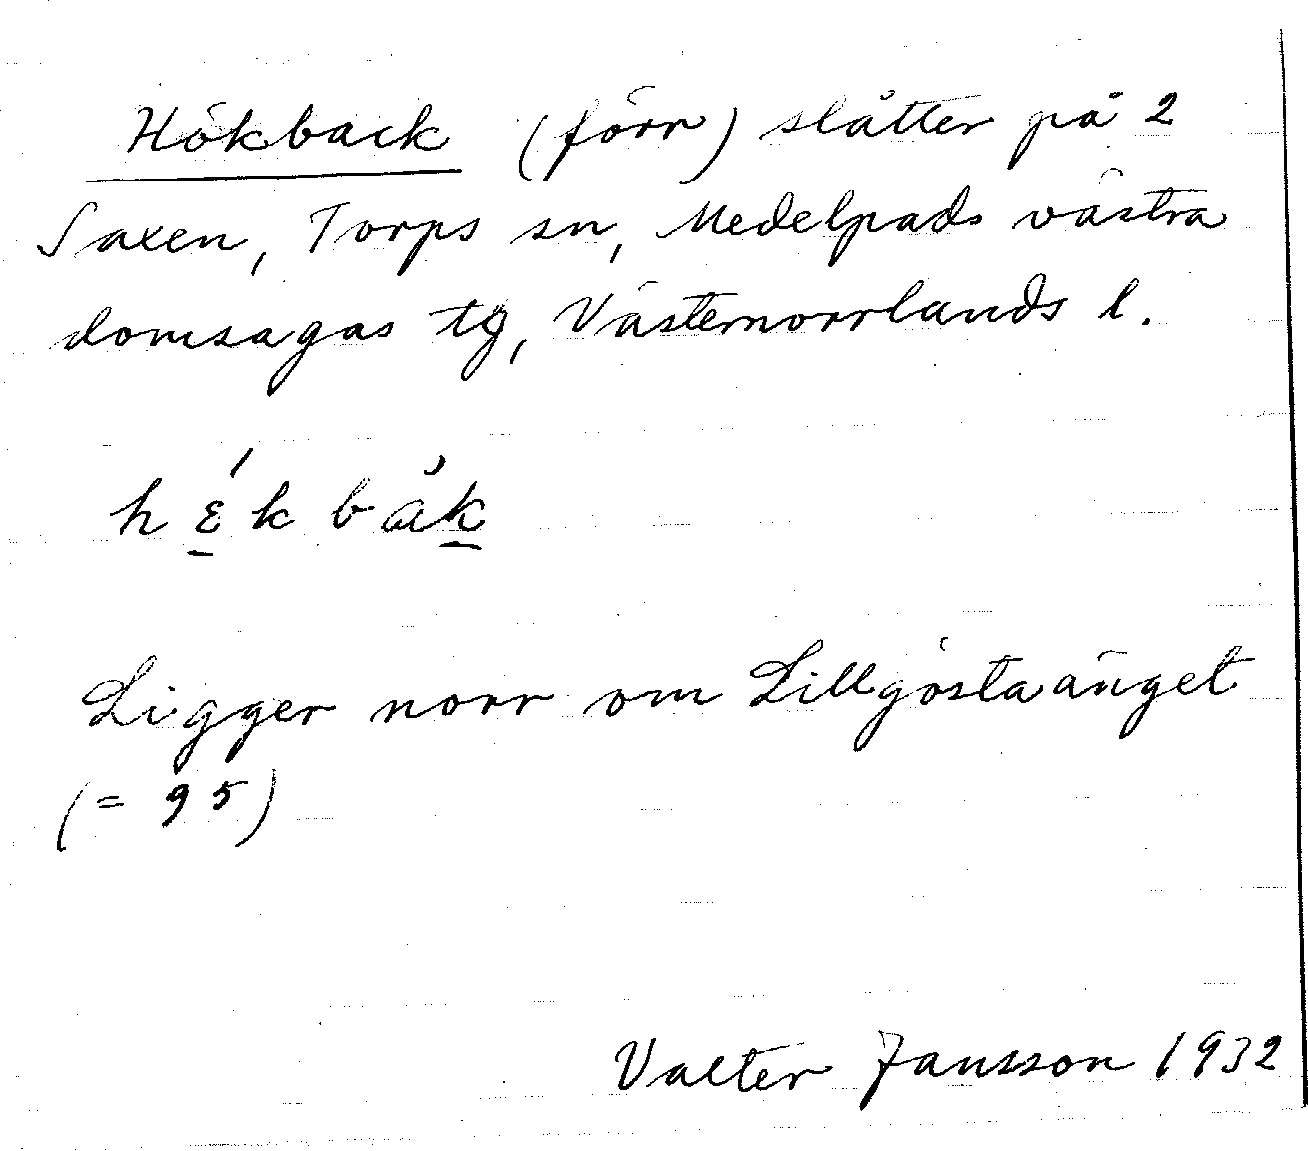 Hökback (förr) slåtter på 2
Saxen, Torps sn, Medelpads västra
domsagas tg, Västernorrlands l.
hέkbåk
Ligger norr om Lillgöstaänget
(= 95)
Valter Jansson 1932